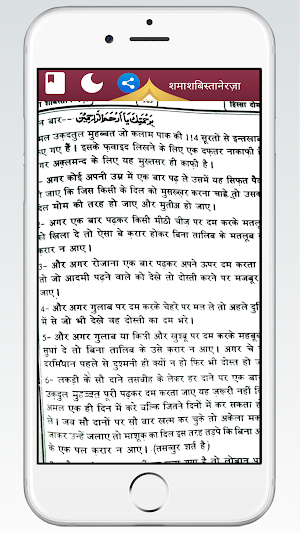 शमाशबिस्तानेरज़ा
हिस्सा दोम
न बार— بِرَحْمَتِكَ يَا أَرْحَمَ الرَّاحِمِيْنَ
मल उकदतुल मुहब्बत जो कलाम पाक की 114 सूरतों से इन्तखाब
गए हैं। इसके फ़वाइद लिखने के लिए एक दफ़तर नाकाफी
गर अक़्लमन्द के लिए यह मुख़्तसर ही काफ़ी है।
- अगर कोई अपनी उम्र में एक बार पढ़ ले उसमें यह सिफ़त पैद
जाए कि जिस किसी के दिल को मुसख़्ख़र करना चाहे तो उसक
दिल मोम की तरह हो जाए और मुतीअ हो जाए।
2- अगर एक बार पढ़कर किसी मीठी चीज़ पर दम करके मतलू
को खिला दे तो ऐसा बे करार होकर बिना तालिब के मतलूब
करार न आए।
3- और अगर रोजाना एक बार पढ़कर अपने ऊपर दम करता
तो जो आदमी पढ़ने वाले को देखे तो दोस्ती करने पर मजबूर
जाए।
4- और अगर गुलाब पर दम करके चेहरे पर मल ले तो अहले दु
में से जो भी देखे वह दोस्ती का दम भरे।
5- और अगर गुलाब या किसी और खुश्बू पर दम करके महबू
सुंघा दे तो बिना तालिब के उसे करार न आए। अगर चे
दरमियान पहले से दुश्मनी ही क्यों न हो फिर भी दोस्त हो ज
6- लकड़ी के सौ दाने तसबीह के लेकर हर दाने पर एक बार
उकदतुल मुहब्बत पूरी पढ़कर दम करता जाए यह जरूरी नहीं
अमल एक ही दिन में करे बल्कि जितने दिनों में कर सकता
ले। जब सौ दानों पर सौ बार खत्म कर चुके तो अकेला मक
जाकर उन्हें जलाए तो माशूक का दिल इस तरह तड़पे कि बिना
के एक पल करार न आए। (तसव्वुर शर्त है)